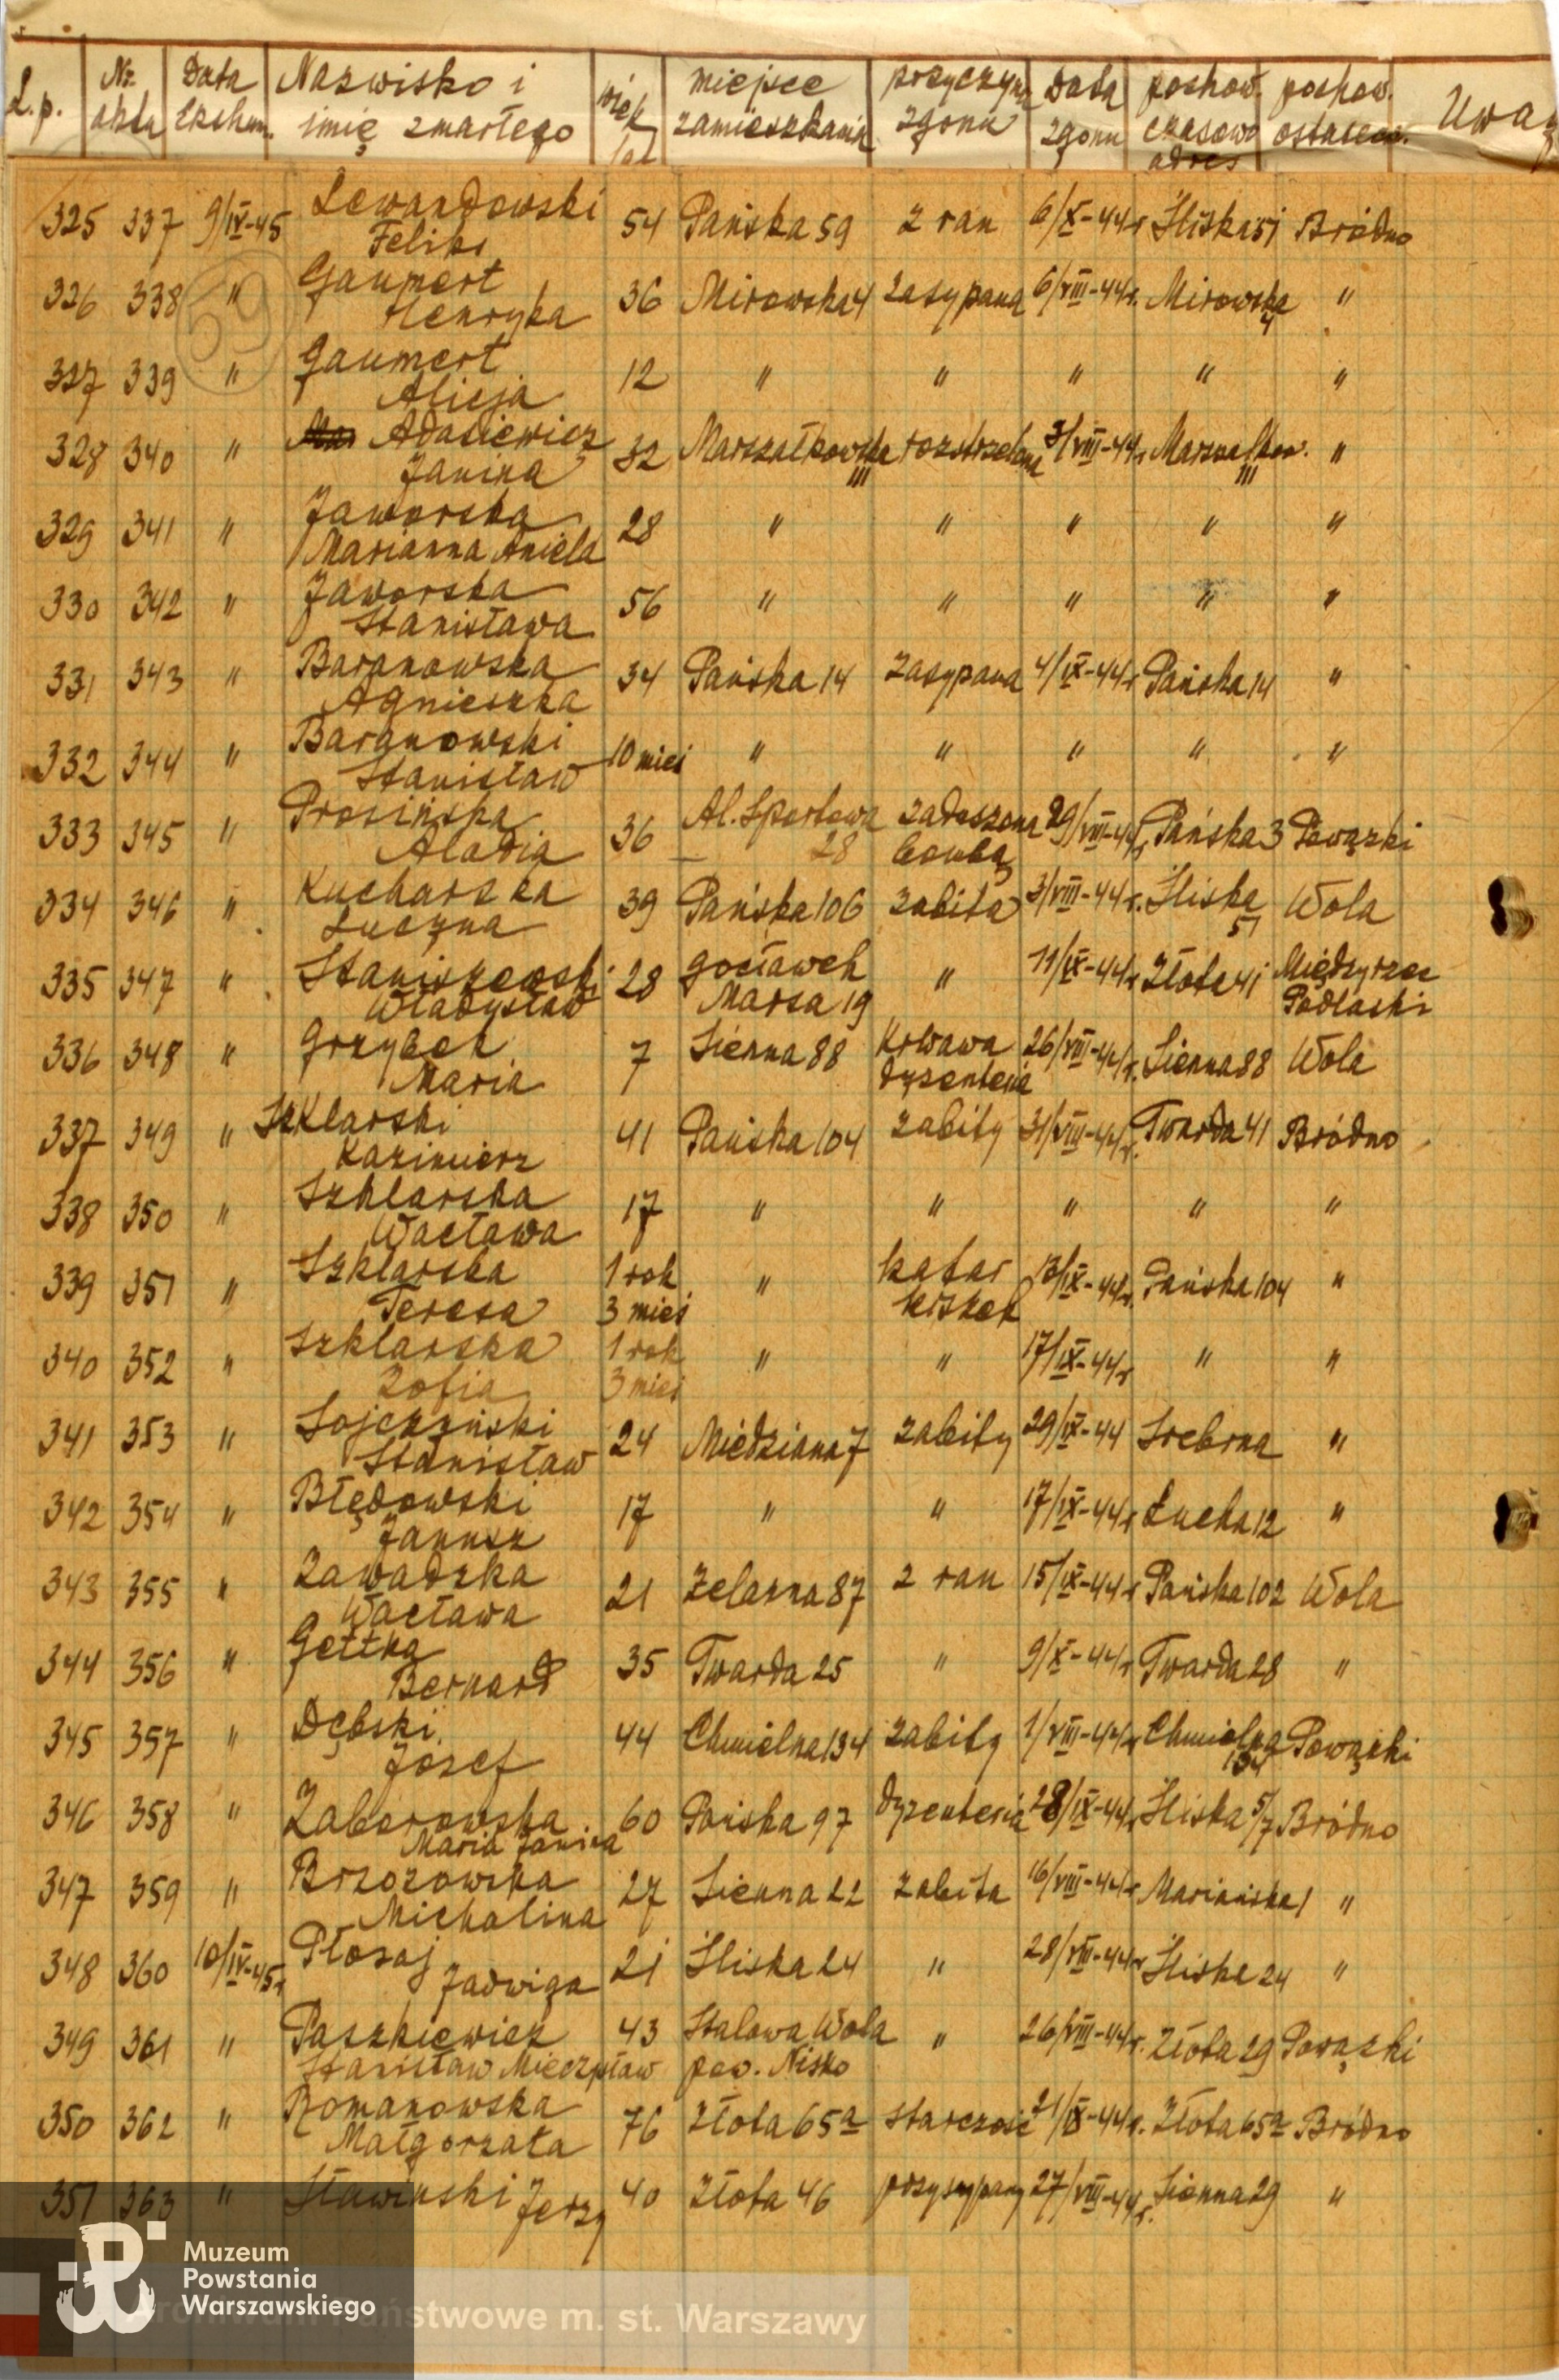 L.p. Nr. aktu Data Ekshum. Nazwisko i imię zmarłego wiek lat miejsce zamieszkania przyczyna zgonu Data zgonu pochow. czasowo adres pochow. ostatecz. Uwag
325 337 9/IV-45 Lewandowski Feliks 54 Pańska 59 z ran 6/X-44r Śliska 51 Bródno
326 338 " Gaumert Henryka 36 Mirowska 4 zasypana 6/VIII-44r. Mirowska 4 "
327 339 " Gaumert Alicja 12 " " " " "
328 340 " Adasiewicz Janina 32 Marszałkowska 111 rozstrzelana 3/VIII-44r Marszałkow. 111 "
329 341 " Jaworska Marianna Aniela 28 " " " " "
330 342 " Jaworska Stanisława 56 " " " " "
331 343 " Baranowska Agnieszka 34 Pańska 14 zasypana 4/IX-44r Pańska 14 "
332 344 " Baranowski Stanisław 10 mieś " " " " "
333 345 " Prosińska Aladia 36 Al. Sportowa 28 bombą 29/VIII-44r Pańska 3 Powązki
334 346 " Kucharska Luczna 39 Pańska 106 zabita 3/VIII-44r. Śliska 51 Wola
335 347 " Staniszewski Władysław 28 Gocławek Marsa 19 " 11/IX-44r Złota 41 Międzyrzec Podlaski
336 348 " Grzybek Maria 7 Sienna 88 Krwawa dyzenteria 26/VIII-44r. Sienna 88 Wola
337 349 " Szklarski Kazimierz 41 Pańska 104 zabity 31/VIII-44r. Twarda 41 Bródno
338 350 " Szklarska Wacława 17 " " " " "
339 351 " Szklarska Teresa 1 rok 3 mieś " katar kiszek 13/IX-44r. Pańska 104 "
340 352 " Szklarska Zofia 1 rok 3 mieś " " 17/IX-44r " "
341 353 " Sojczyński Stanisław 24 Miedziana 7 zabity 29/IX-44 Srebrna "
342 354 " Błędowski Janusz 17 " " 17/IX-44r Łucka 12 "
343 355 " Zawadzka Wacława 21 Żelazna 87 z ran 15/IX-44r Pańska 102 Wola
344 356 " Gettka Bernard 35 Twarda 25 " 9/X-44r Twarda 28 "
345 357 " Dębski Józef 44 Chmielna 134 zabity 1/VIII-44r Chmielna 134 Powązki
346 358 " Zaborowska Maria Janina 60 Pańska 97 dyzenteria 28/IX-44r Śliska 5/7 Bródno
347 359 " Brzozowska Michalina 27 Sienna 22 zabita 16/VIII-44r Mariańska 1 "
348 360 10/IV-45r Płosaj Jadwiga 21 Śliska 24 " 28/VIII-44r Śliska 24 "
349 361 " Paszkiewicz Stanisław Mieczysław 43 Stalowa Wola pow. Nisko " 26/VIII-44r. Złota 29 Powązki
350 362 " Romanowska Małgorzata 76 Złota 65a starczość 21/IX-44r. Złota 65a Bródno
351 363 " Sławiński Jerzy 40 Złota 46 przysypany 27/VIII-44r. Sienna 29 "
Muzeum
Powstania
Warszawskiego
Archiwum Państwowe m. st. Warszawy